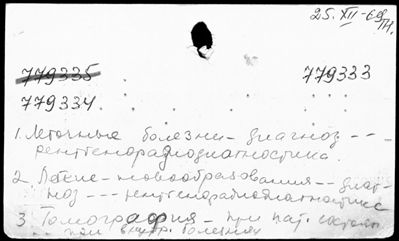 25.XII-69
ТН.
779335 779333
779334
1. Легочные болезни - диагноз ---
рентгенорадиодиагностика.
2. Легкие - новообразования -- диаг-
ноз --- рентгенорадиодиагностика
3 Томография - при пат. состоян
при внутр. болезнях